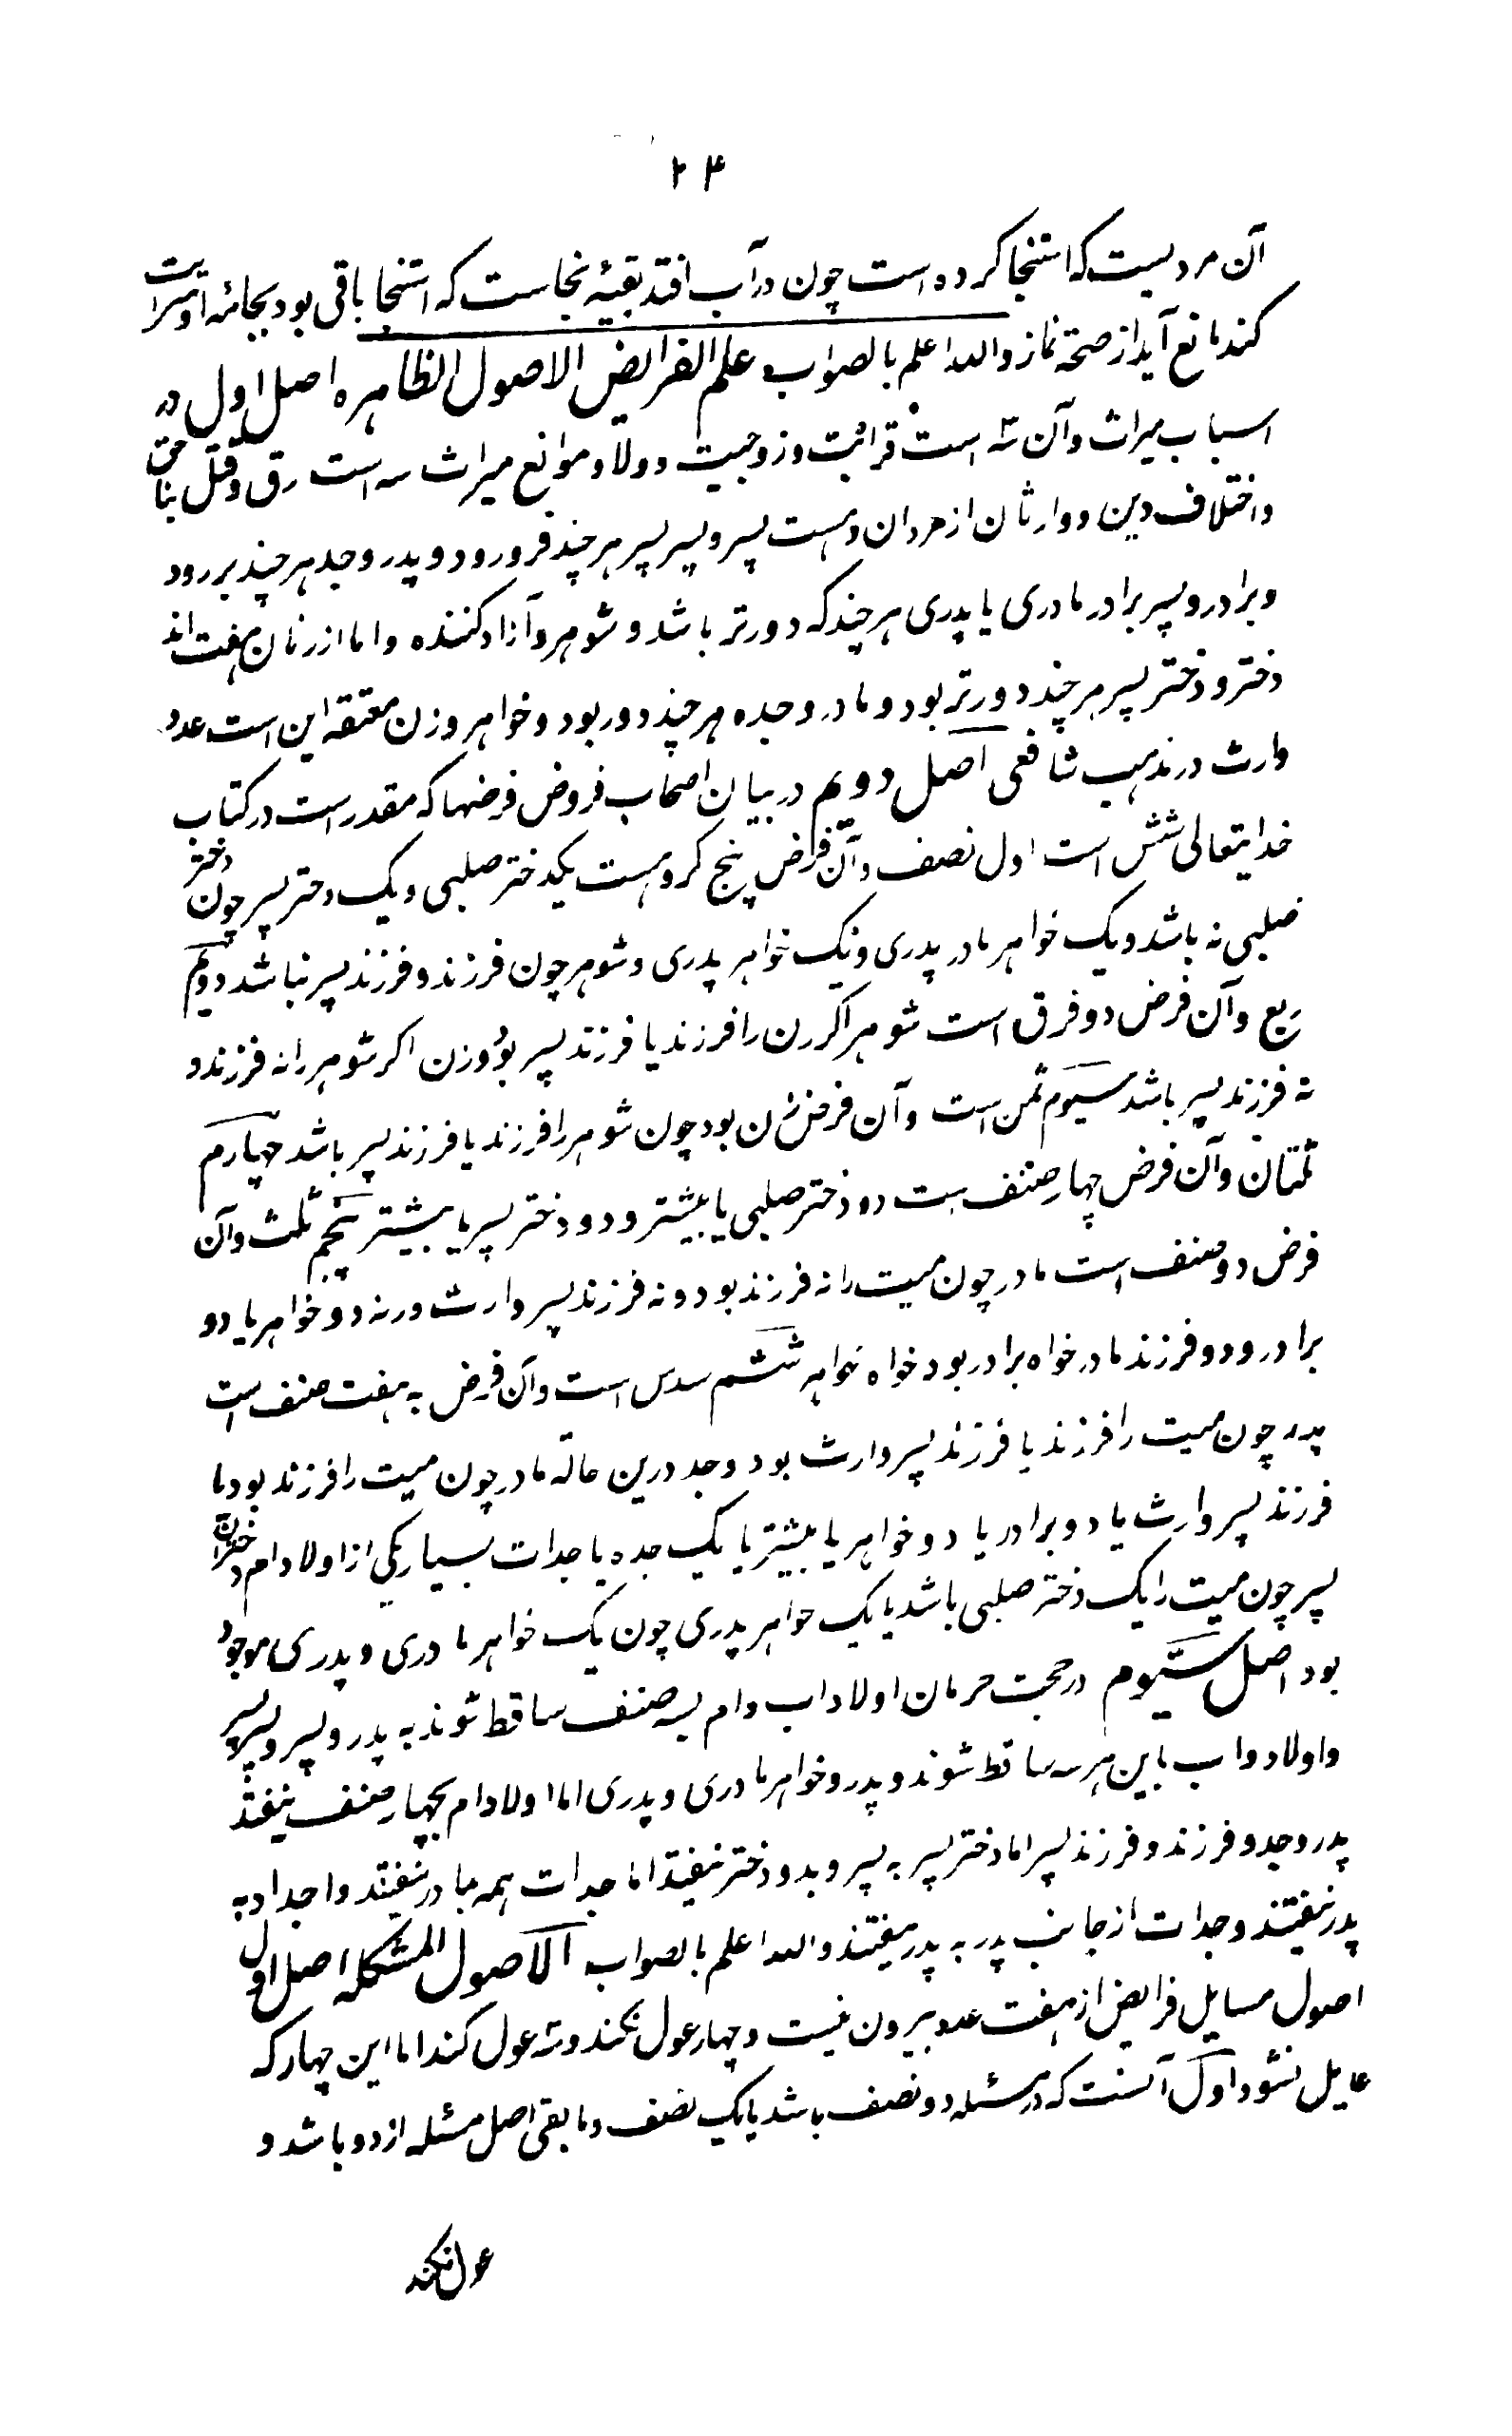 ۲۴
آن مردیست که استنجا کرده است چون در آب افتد بقیهٔ نجاست که استنجا باقی بود بجامه او سرایت
کند مانع آید از صحة نماز والله اعلم بالصواب علم الفرایض الاصول الظاهره اصل اول در
اسباب میراث و آن سه است قرابت و زوجیت و ولا و موانع میراث سه است رق و قتل بناحق
و اختلاف دین و وارثان از مردان ده است پسر و پسر پسر هر چند فرو رود و پدر و جد هر چند بر رود
و برادر و پسر برادر مادری یا پدری هر چند که دورتر باشد و شوهر و آزاد کننده و اما از زنان هفت اند
دختر و دختر پسر هر چند دورتر بود و مادر و جده هر چند دور بود و خواهر و زن معتقه این است عدد
وارث در مذهب شافعی اصل دویم در بیان اصحاب فروض فرضها که مقدر است در کتاب
خدایتعالی شش است اول نصف و آن فرض پنج کروه است یکدختر صلبی و یک دختر پسر چون دختر
صلبی نه باشد و یک خواهر مادر پدری و یک خواهر پدری و شوهر چون فرزند و فرزند پسر نباشد دویم
ربع و آن فرض دو فرق است شوهر اکر زن را فرزند یا فرزند پسر بود و زن اکر شوهر را نه فرزند و
نه فرزند پسر باشد سیوم ثمن است و آن فرض زن بود چون شوهر را فرزند یا فرزند پسر باشد چهارم
ثلثان و آن فرض چهار صنف است دو دختر صلبی یا بیشتر و دو دختر پسر یا بیشتر پنجم ثلث و آن
فرض دو صنف است مادر چون میت را نه فرزند بود و نه فرزند پسر وارث و نه دو خواهر یا دو
برادر و دو فرزند مادر خواه برادر بود خواه خواهر ششم سدس است و آن فرض به هفت صنف است
پدر چون میت را فرزند یا فرزند پسر وارث بود و جد درین حاله مادر چون میت را فرزند بود یا
فرزند پسر وارث یا دو برادر یا دو خواهر یا بیشتر یا یک جده یا جدات بسیار یکی از اولاد ام دختران
پسر چون میت را یک دختر صلبی باشد یا یک خواهر پدری چون یک خواهر مادری و پدری موجود
بود اصل سیوم در حجت حرمان اولاد اب و ام بسه صنف ساقط شوند به پدر و پسر و پسر پسر
و اولاد و اب باین هر سه ساقط شوند و پدر و خواهر مادری و پدری اما اولاد ام بچهار صنف بیفتد
پدر و جد و فرزند و فرزند پسر اما دختر پسر به پسر و بدو دختر بیفتد اما جدات همه بمادر بیفتند و اجداد به
پدر بیفتند و جدات از جانب پدر به پدر بیفتند والله اعلم بالصواب الاصول المشکله اصل اول
اصول مسایل فرایض از هفت عدد بیرون نیست و چهار عول نکند و سه عول کند اما این چهار که
عایل نشود اول آنست که در مسئله دو نصف باشد یا یک نصف و ما بقی اصل مسئله از دو باشد و
عول نکند